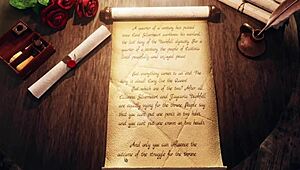 A quarter of a century has passed
since Karid Silverment
the last king of the Faithful dynasty. For a
quarter of a century the people of
lived peacefully and enjoyed peace.
But everything comes to an end. The
king is dead! Long live the Queen!
But which one of the two? After all
Silverment and Faithful
are equally vying for the throne. People say
that you can't put one penis in two holes,
and you can't put one crown on two heads.
And only you can influence the
outcome of the struggle for the throne.